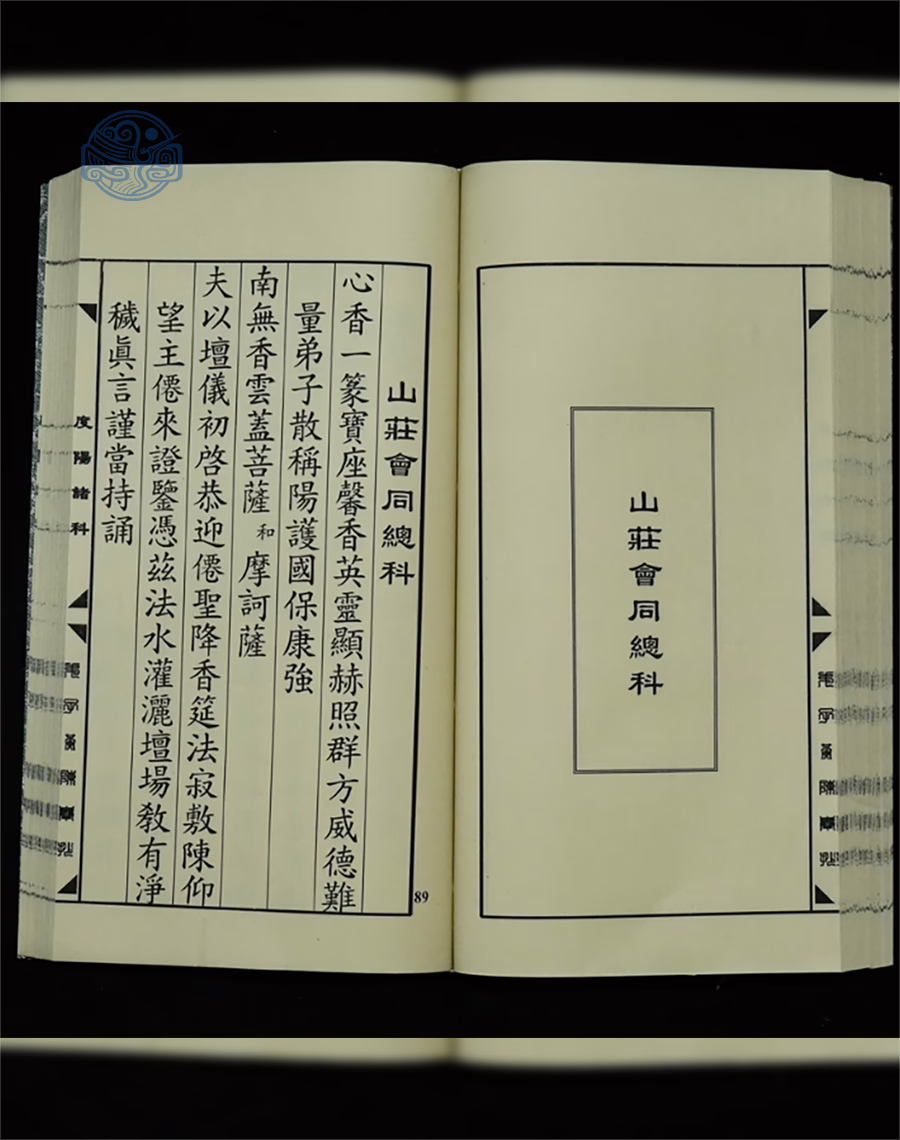 山莊會同總科
山莊會同總科
心香一篆寶座馨香英靈顯赫照群方威德難
量弟子散稱陽護國保康強
南無香雲蓋菩薩和摩訶薩
夫以壇儀初啓恭迎僊聖降香筵法寂敷陳仰
望主僊來證鑒憑茲法水灌灑壇場教有淨
穢眞言謹當持誦
度陽諸科
89